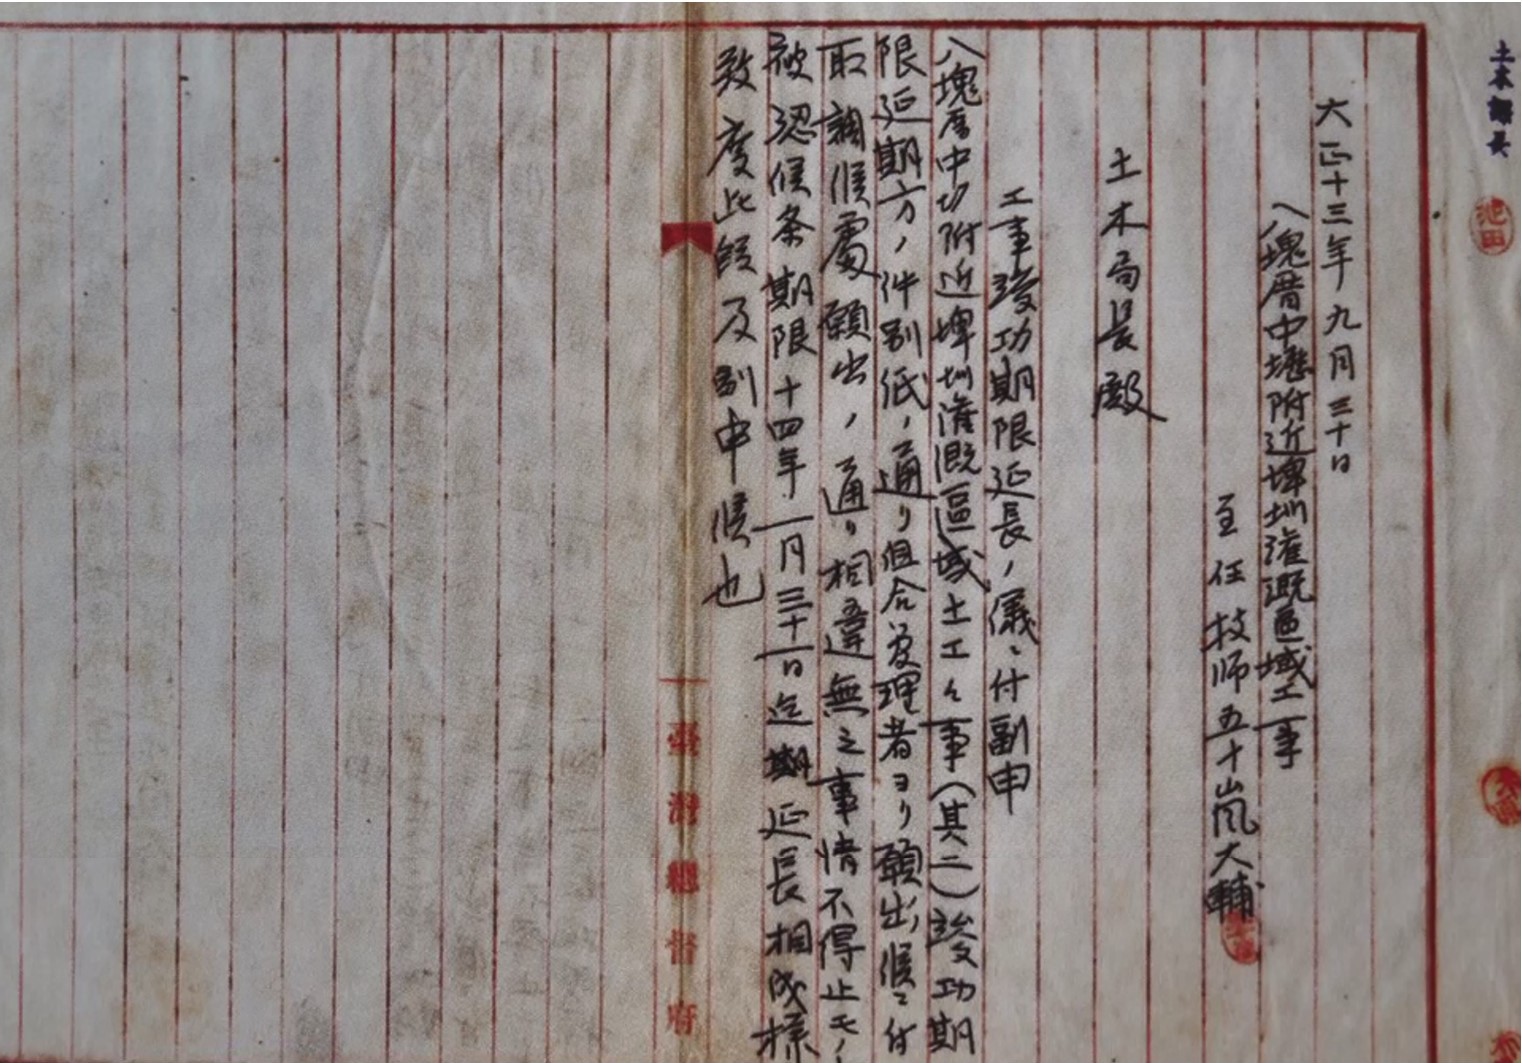 土木課長
池田
大正十三年九月三十日
八塊厝中壢附近埤圳灌溉區域工事
主任技師五十嵐大輔
土木局長殿
工事竣功期限延長ノ儀ニ付副申
八塊厝中切附近埤圳灌溉區域土工々事(其二)竣功期
限延期方ノ件別紙ノ通リ組合管理者ヨリ願出候ニ付
取調候處願出ノ通リ相違無之事情不得止モノ
被認候条期限十四年一月三十一日迄期延長相成樣
致度此段及副申候也
臺灣總督府